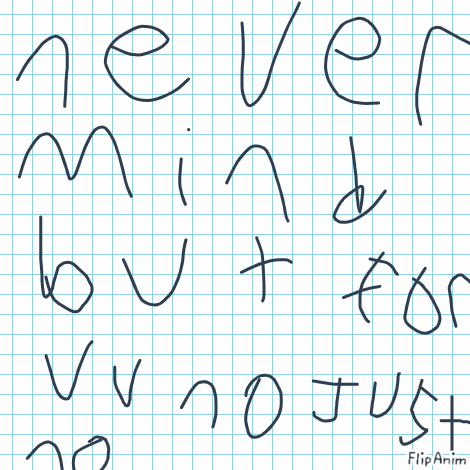 never
mind
but for
vv no just
no
FlipAnim